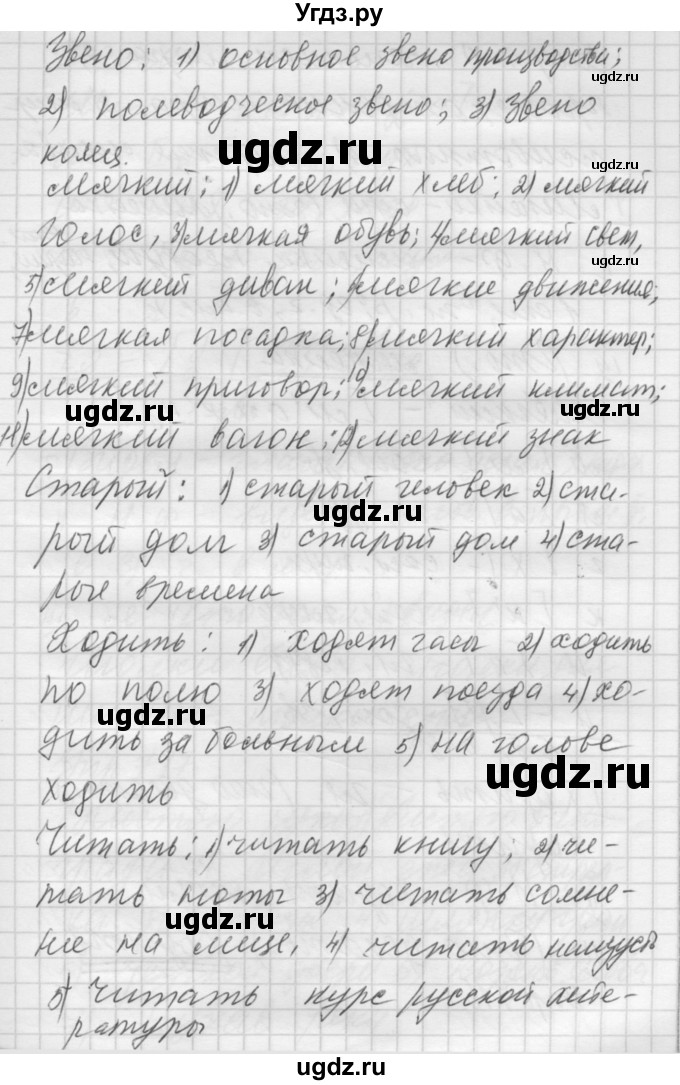 Угдз.ру
Звено: 1) основное звено производства;
ugdz.ru
2) полеводческое звено; 3) Звено
ugdz.ru
ugdz.ru
колец.
Мягкий: 1) мягкий хлеб; 2) мягкий
голос, 3) мягкая обувь; 4) мягкий свет,
ugdz.ru
ugdz.ru
5) мягкий диван; 6) мягкие движения;
7) мягкая посадка; 8) мягкий характер;
ugdz.ru
9) мягкий приговор; 10) мягкий климат;
ugdz.ru
ugdz.ru
11) мягкий вагон; 12) мягкий знак
Старый: 1) старый человек 2) ста-
ugdz.ru
рый долг 3) старый дом 4) ста-
рые времена
Ходить: 1) ходят часы 2) ходить
ugdz.ru
по полю 3) ходят поезда 4) хо-
ugdz.ru
дить за больным 5) на голове
ugdz.ru
ходить
Читать: 1) читать книгу; 2) чи-
тать ноты 3) читать сомне-
ugdz.ru
ние на лице, 4) читать наизусть
5) Читать курс русской лите-
ратуры
ugdz.ru